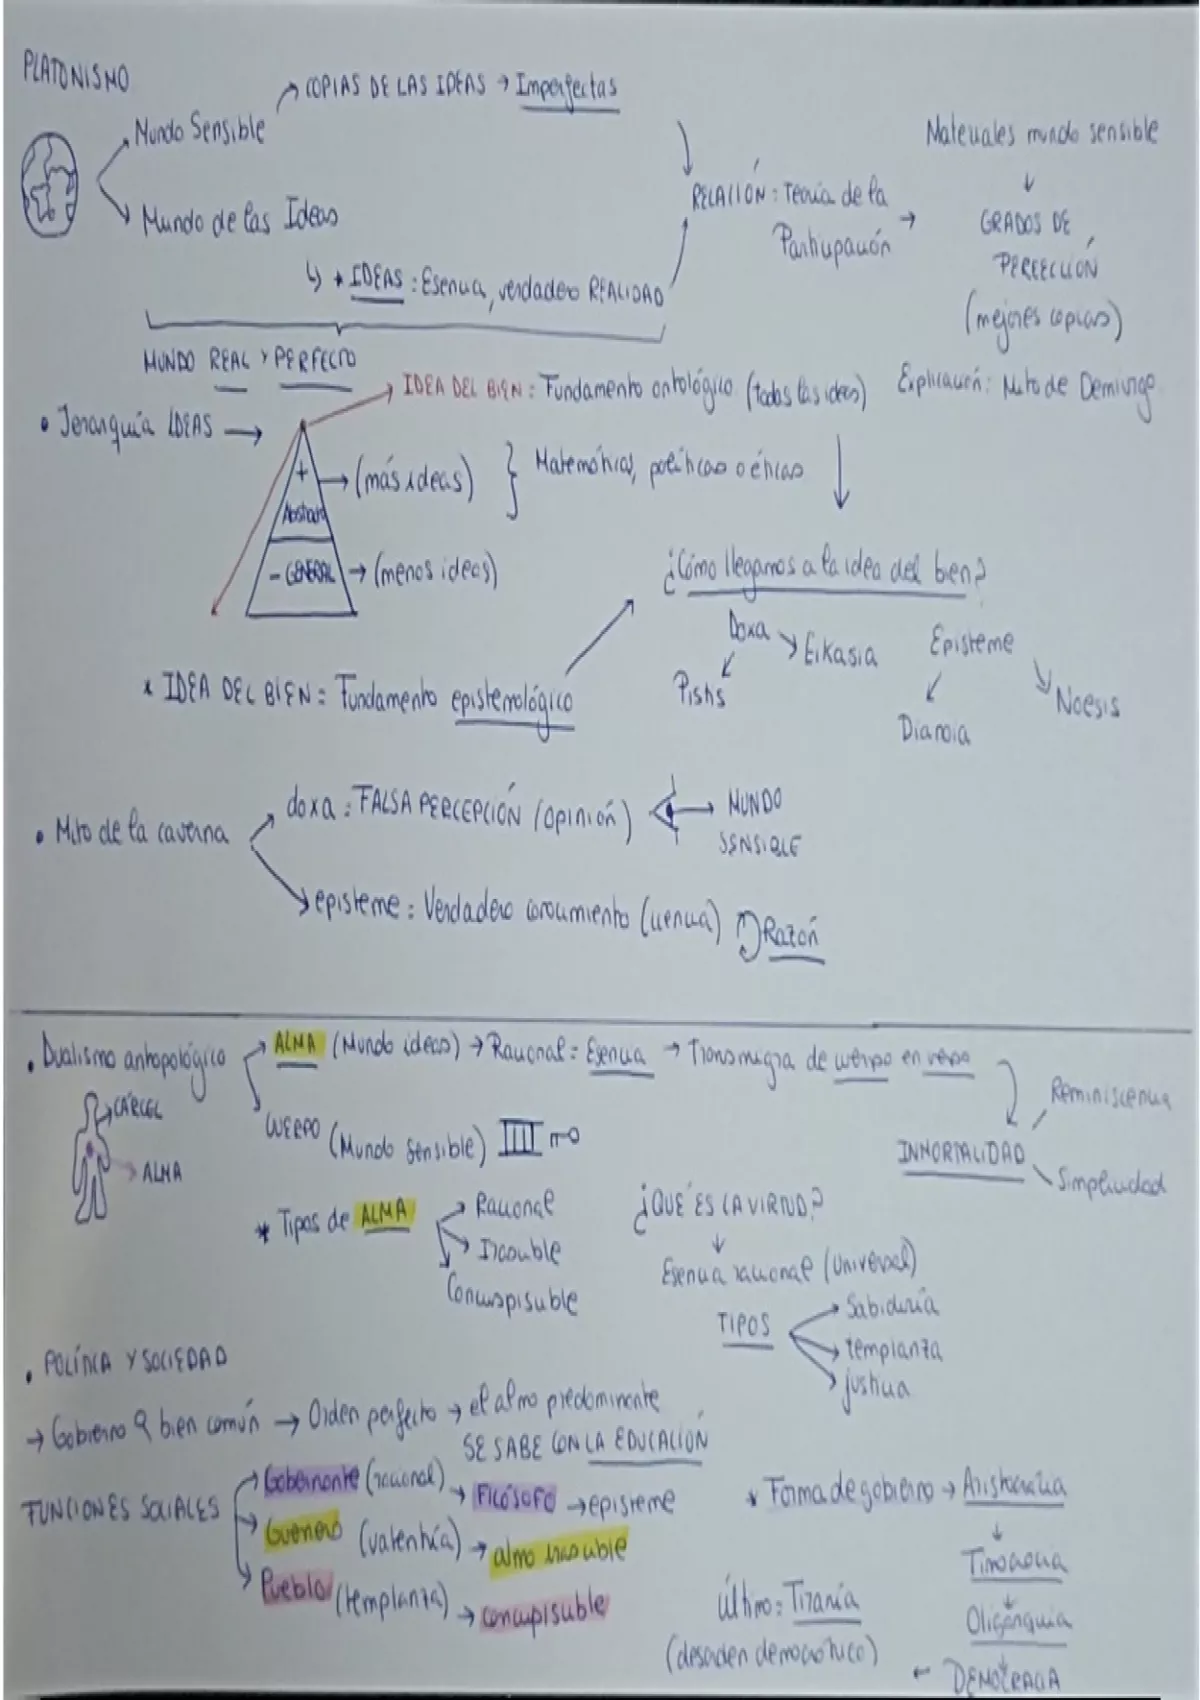 PLATONISMO
Mundo Sensible
COPIAS DE LAS IDEAS → Imperfectas
Mundo de las Ideas
↳ * IDEAS : Esencia, verdadero REALIDAD
MUNDO REAL Y PERFECTO
RELACIÓN : Teoría de la
Participación →
Materiales mundo sensible
↓
GRADOS DE
PERFECCIÓN
(mejores copias)
Explicación: Mito de Demiurgo
• Jerarquía IDEAS →
→ IDEA DEL BIEN : Fundamento ontológico (todas las ideas)
+
Abstract
→ (más ideas) } Matemáticas, políticas o éticas
- GENERAL → (menos ideas)
¿Cómo llegamos a la idea del bien?
Doxa
Eikasia
Pistis
Episteme
Dianoia
Noesis
* IDEA DEL BIEN = Fundamento epistemológico
• Mito de la caverna
doxa : FALSA PERCEPCIÓN (opinión)
→ MUNDO
SENSIBLE
episteme : Verdadero conocimiento (ciencia)
Razón
• Dualismo antropológico
ALMA (Mundo ideas) → Racional = Esencia → Transmigra de cuerpo en cuerpo
CUERPO (Mundo Sensible)
CÁRCEL
ALMA
INMORTALIDAD
Reminiscencia
Simplicidad
* Tipos de ALMA
Racional
Irascible
Concupiscible
¿QUÉ ES LA VIRTUD?
↓
Esencia racional (universal)
TIPOS
Sabiduría
templanza
justicia
• POLÍTICA Y SOCIEDAD
→ Gobierno q bien común → Orden perfecto → el alma predominante
SE SABE CON LA EDUCACIÓN
FUNCIONES SOCIALES
Gobernante (racional) → FILÓSOFO → episteme
Guerrero (valentía) → alma irascible
Pueblo (templanza) → concupisuble
* Forma de gobierno → Aristocracia
↓
Timocracia
↓
Oligarquía
← DEMOCRACIA
Último: Tiranía
(desorden democrático)